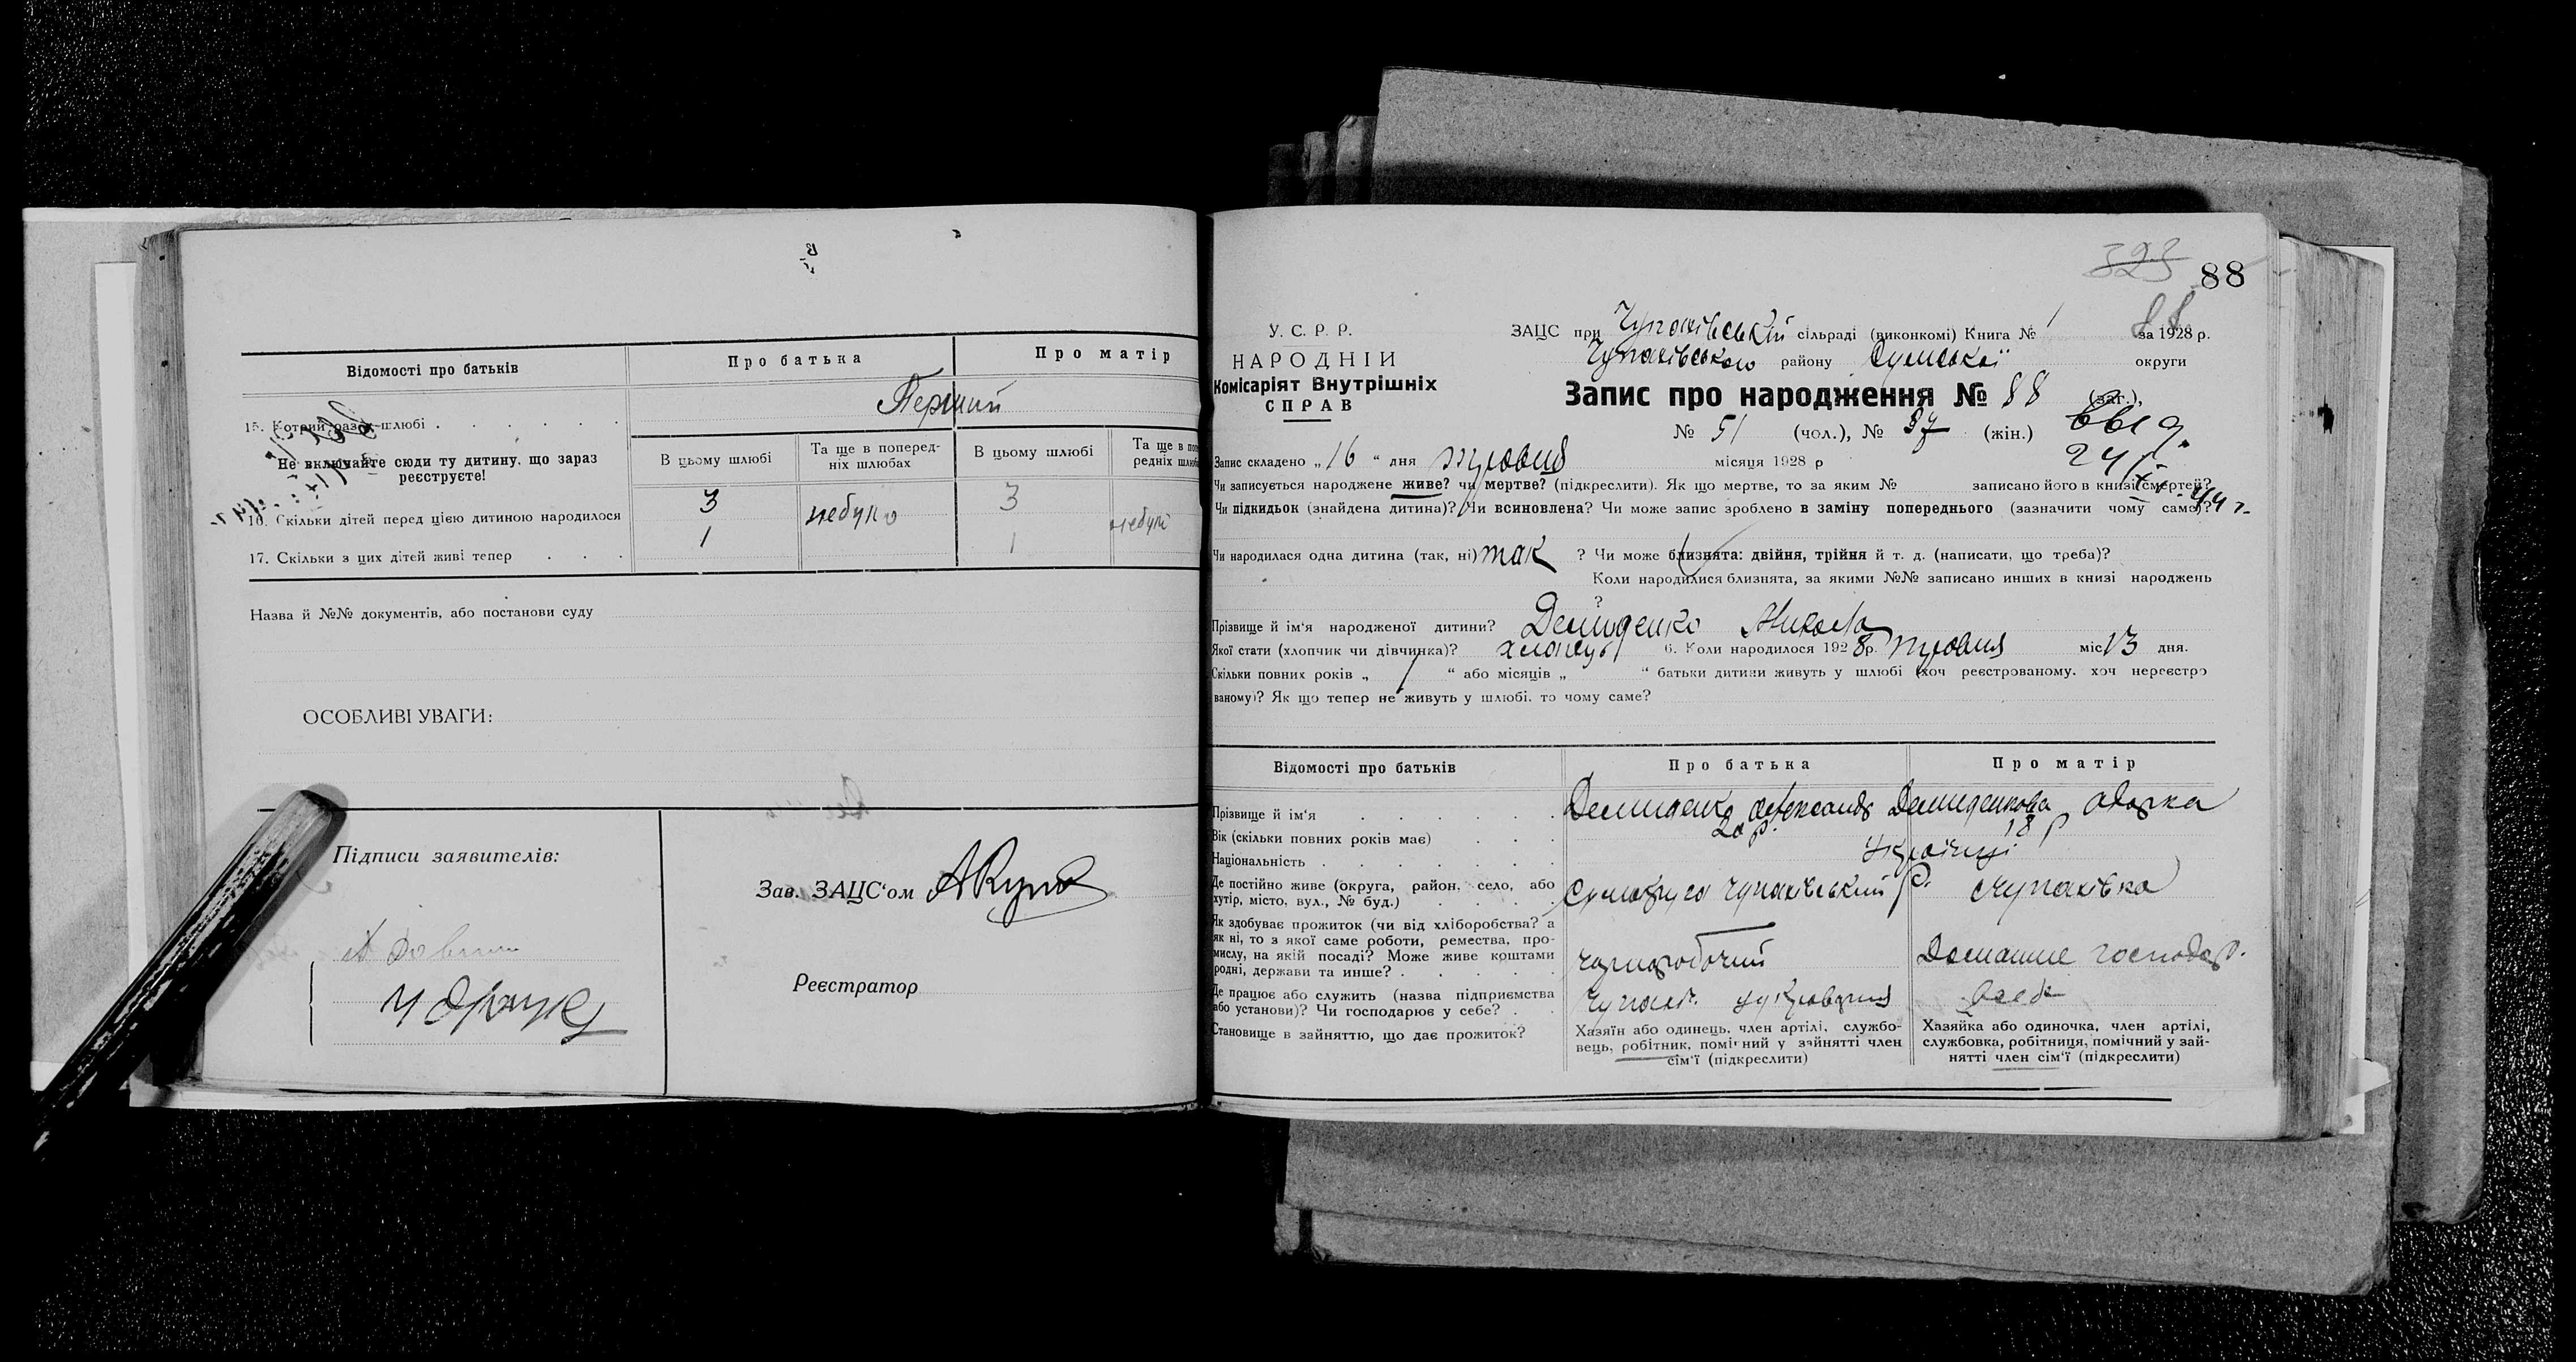 Відомості про батьків
Про батька
Про матір
15. Котрий раз у шлюбі
Перший
Не включайте сюди ту дитину, що зараз реєструєте!
В цьому шлюбі
Та ще в поперед-
ніх шлюбах
В цьому шлюбі
Та ще в поп
редніх шлюб
16. Скільки дітей перед цією дитиною народилося
3
небуло
3
17. Скільки з цих дітей живі тепер
1
1
Назва й №№ документів, або постанови суду
ОСОБЛИВІ УВАГИ:
Підписи заявителів:
Зав. ЗАЦС'ом
Реєстратор
323
88
88
У. С. Р. Р.
НАРОДНІЙ
Комісаріят Внутрішніх
СПРАВ
ЗАЦС при Чупахівській сільраді (виконкомі) Книга № 1 за 1928 р.
Чупахівського району Сумської округи
Запис про народження № 88 (заг.),
№ 51 (чол.), № 37 (жін.)
Выд.
Запис складено „16“ дня травня місяця 1928 р
Чи записується народжене живе? чи мертве? (підкреслити). Як що мертве, то за яким № записано його в книзі смертей?
Чи підкидьок (знайдена дитина)? Чи всиновлена? Чи може запис зроблено в заміну попереднього (зазначити чому саме)?
Чи народилася одна дитина (так, ні) так ? Чи може близнята: двійня, трійня й т. д. (написати, що треба)?
Коли народилися близнята, за якими №№ записано инших в книзі народжень
?
Прізвище й ім'я народженої дитини? Демиденко Микола
Якої стати (хлопчик чи дівчинка)? хлопець 6. Коли народилося 1928 р. травня міс 13 дня.
Скільки повних років „ “ або місяців „ “ батьки дитини живуть у шлюбі (хоч реєстрованому, хоч нереєстро
ваному)? Як що тепер не живуть у шлюбі, то чому саме?
Відомості про батьків
Про батька
Про матір
Прізвище й ім'я
Демиденко Олександр
Демиденкова Одарка
Вік (скільки повних років має)
20 р.
18 р
Національність
Українці
Де постійно живе (округа, район, село, або
хутір, місто, вул., № буд.)
Сумокруга Чупахівський р. с Чупахівка
Як здобуває прожиток (чи від хліборобства? а
як ні, то з якої саме роботи, ремества, про-
мислу, на якій посаді? Може живе коштами
родні, держави та инше?
чорноробочий
Домашне господар.
Де працює або служить (назва підприємства
або установи)? Чи господарює у себе?
Чупахів. цукроварня
Становище в зайняттю, що дає прожиток?
Хазяїн або одинець, член артілі, службо-
вець, робітник, помічний у зайнятті член
сім'ї (підкреслити)
Хазяйка або одиночка, член артілі,
службовка, робітниця, помічний у зай-
нятті член сім'ї (підкреслити)